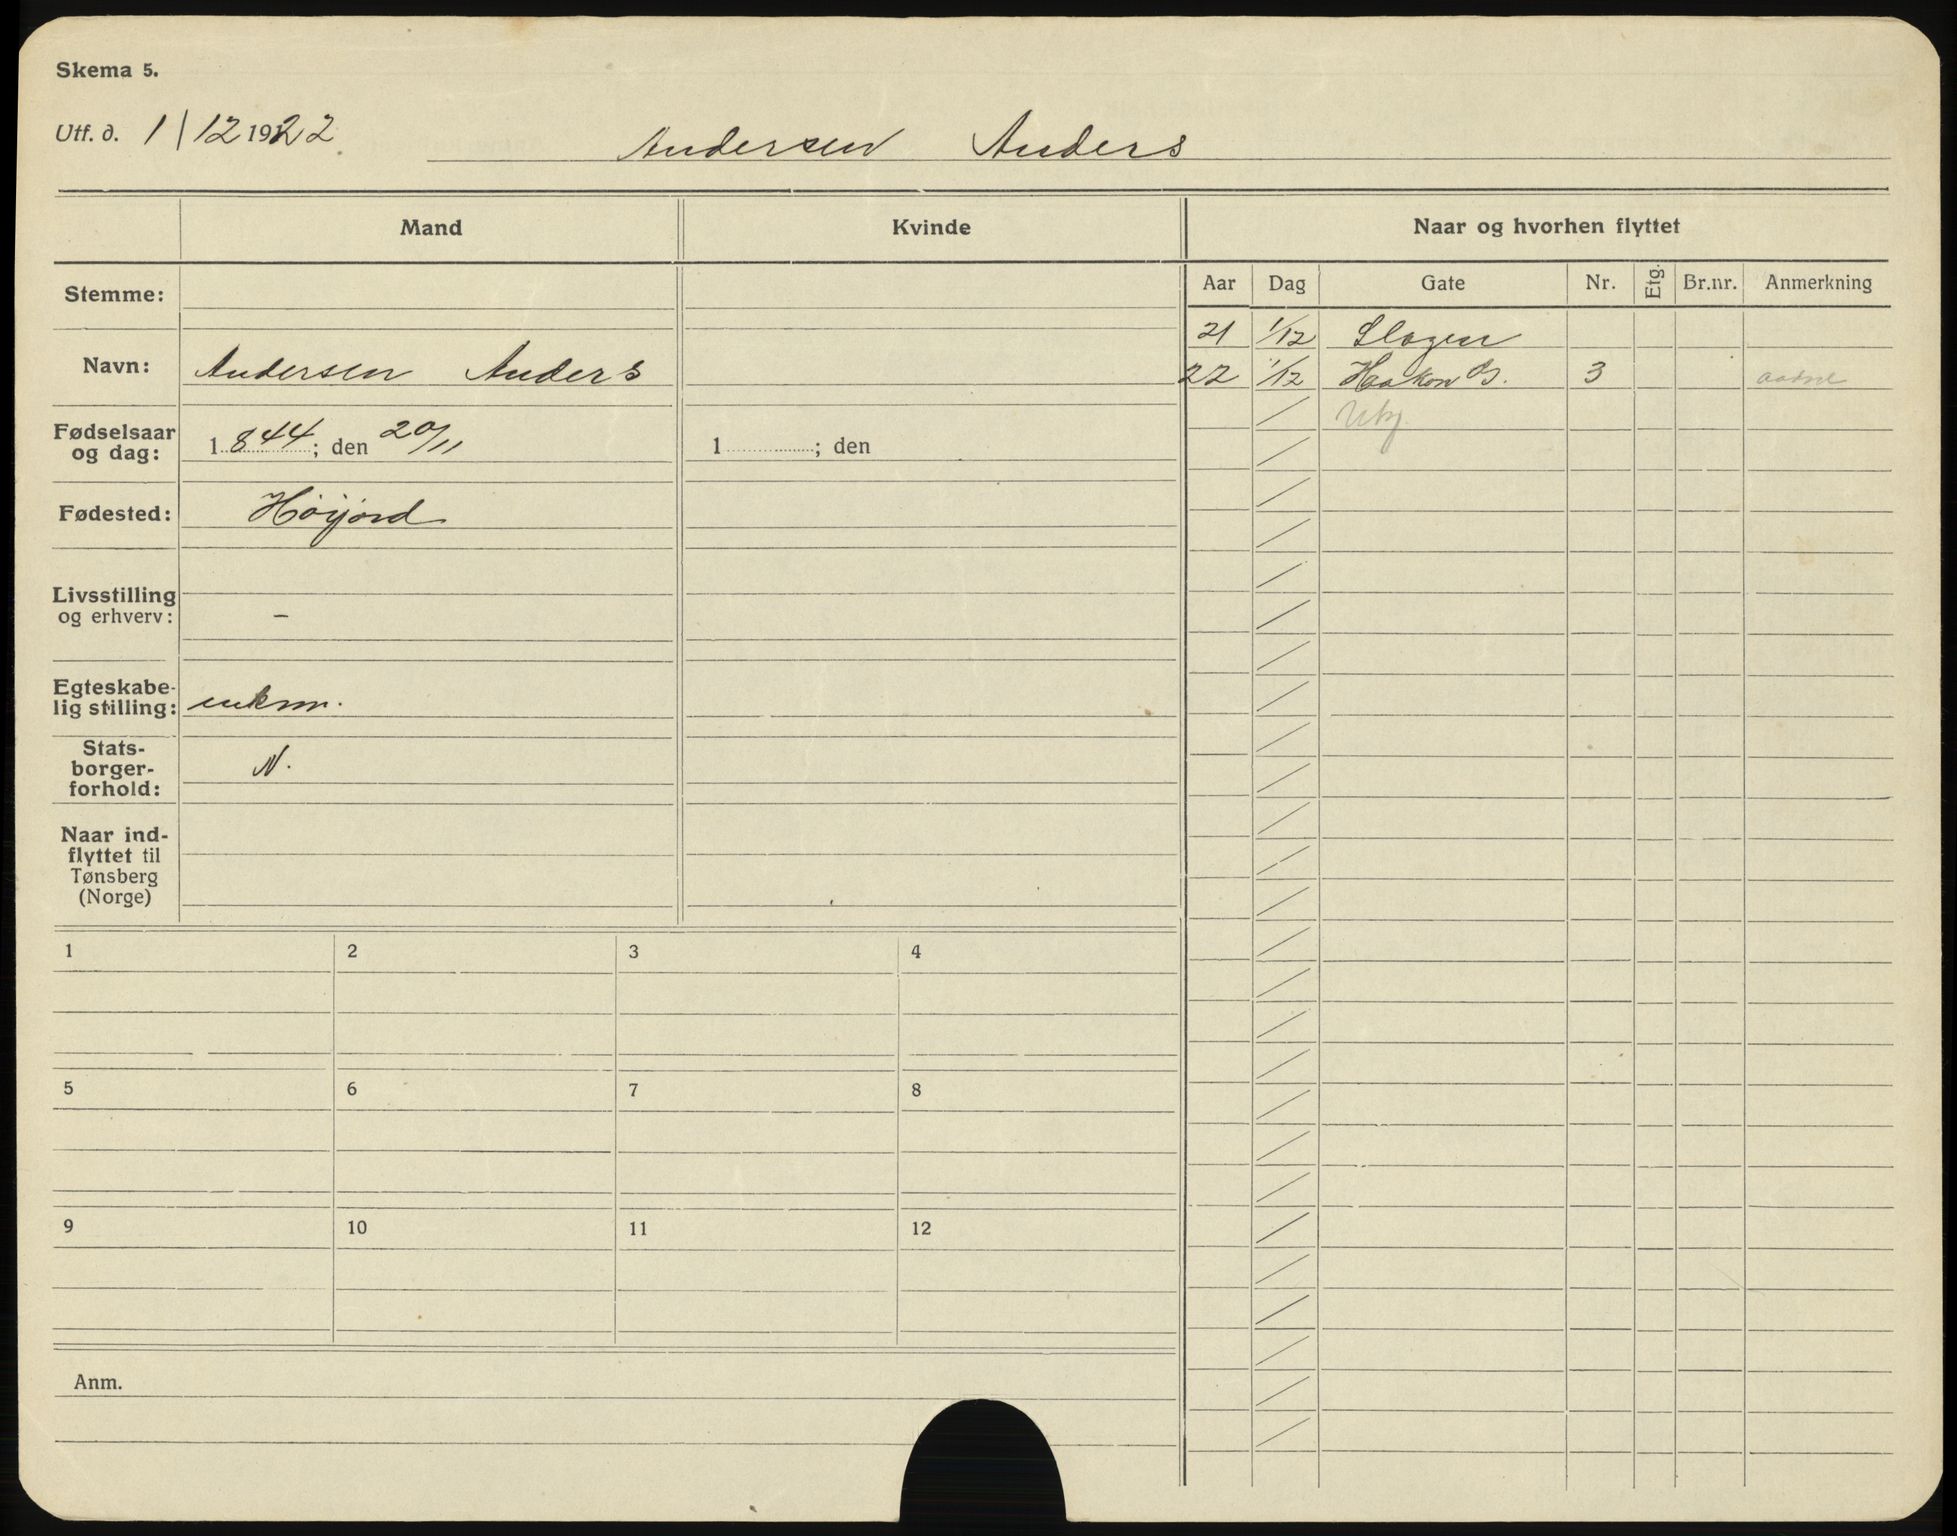 Skema 5.
Utf. d. 1/12 1922
Andersen Anders
Mand
Kvinde
Naar og hvorhen flyttet
Stemme:
Navn: Andersen Anders
Fødselsaar og dag: 1844; den 20/11
1 ; den
Fødested: Höijord
Livsstilling og erhverv: -
Egteskabe-
lig stilling: enkm.
Stats-
borger-
forhold: N.
Naar ind-
flyttet til
Tønsberg
(Norge)
Aar Dag Gate Nr. Etg. Br.nr. Anmerkning
21 1/12 Slagen
22 1/12 Haakon 3
Ukj.
1 2 3 4
5 6 7 8
9 10 11 12
Anm.